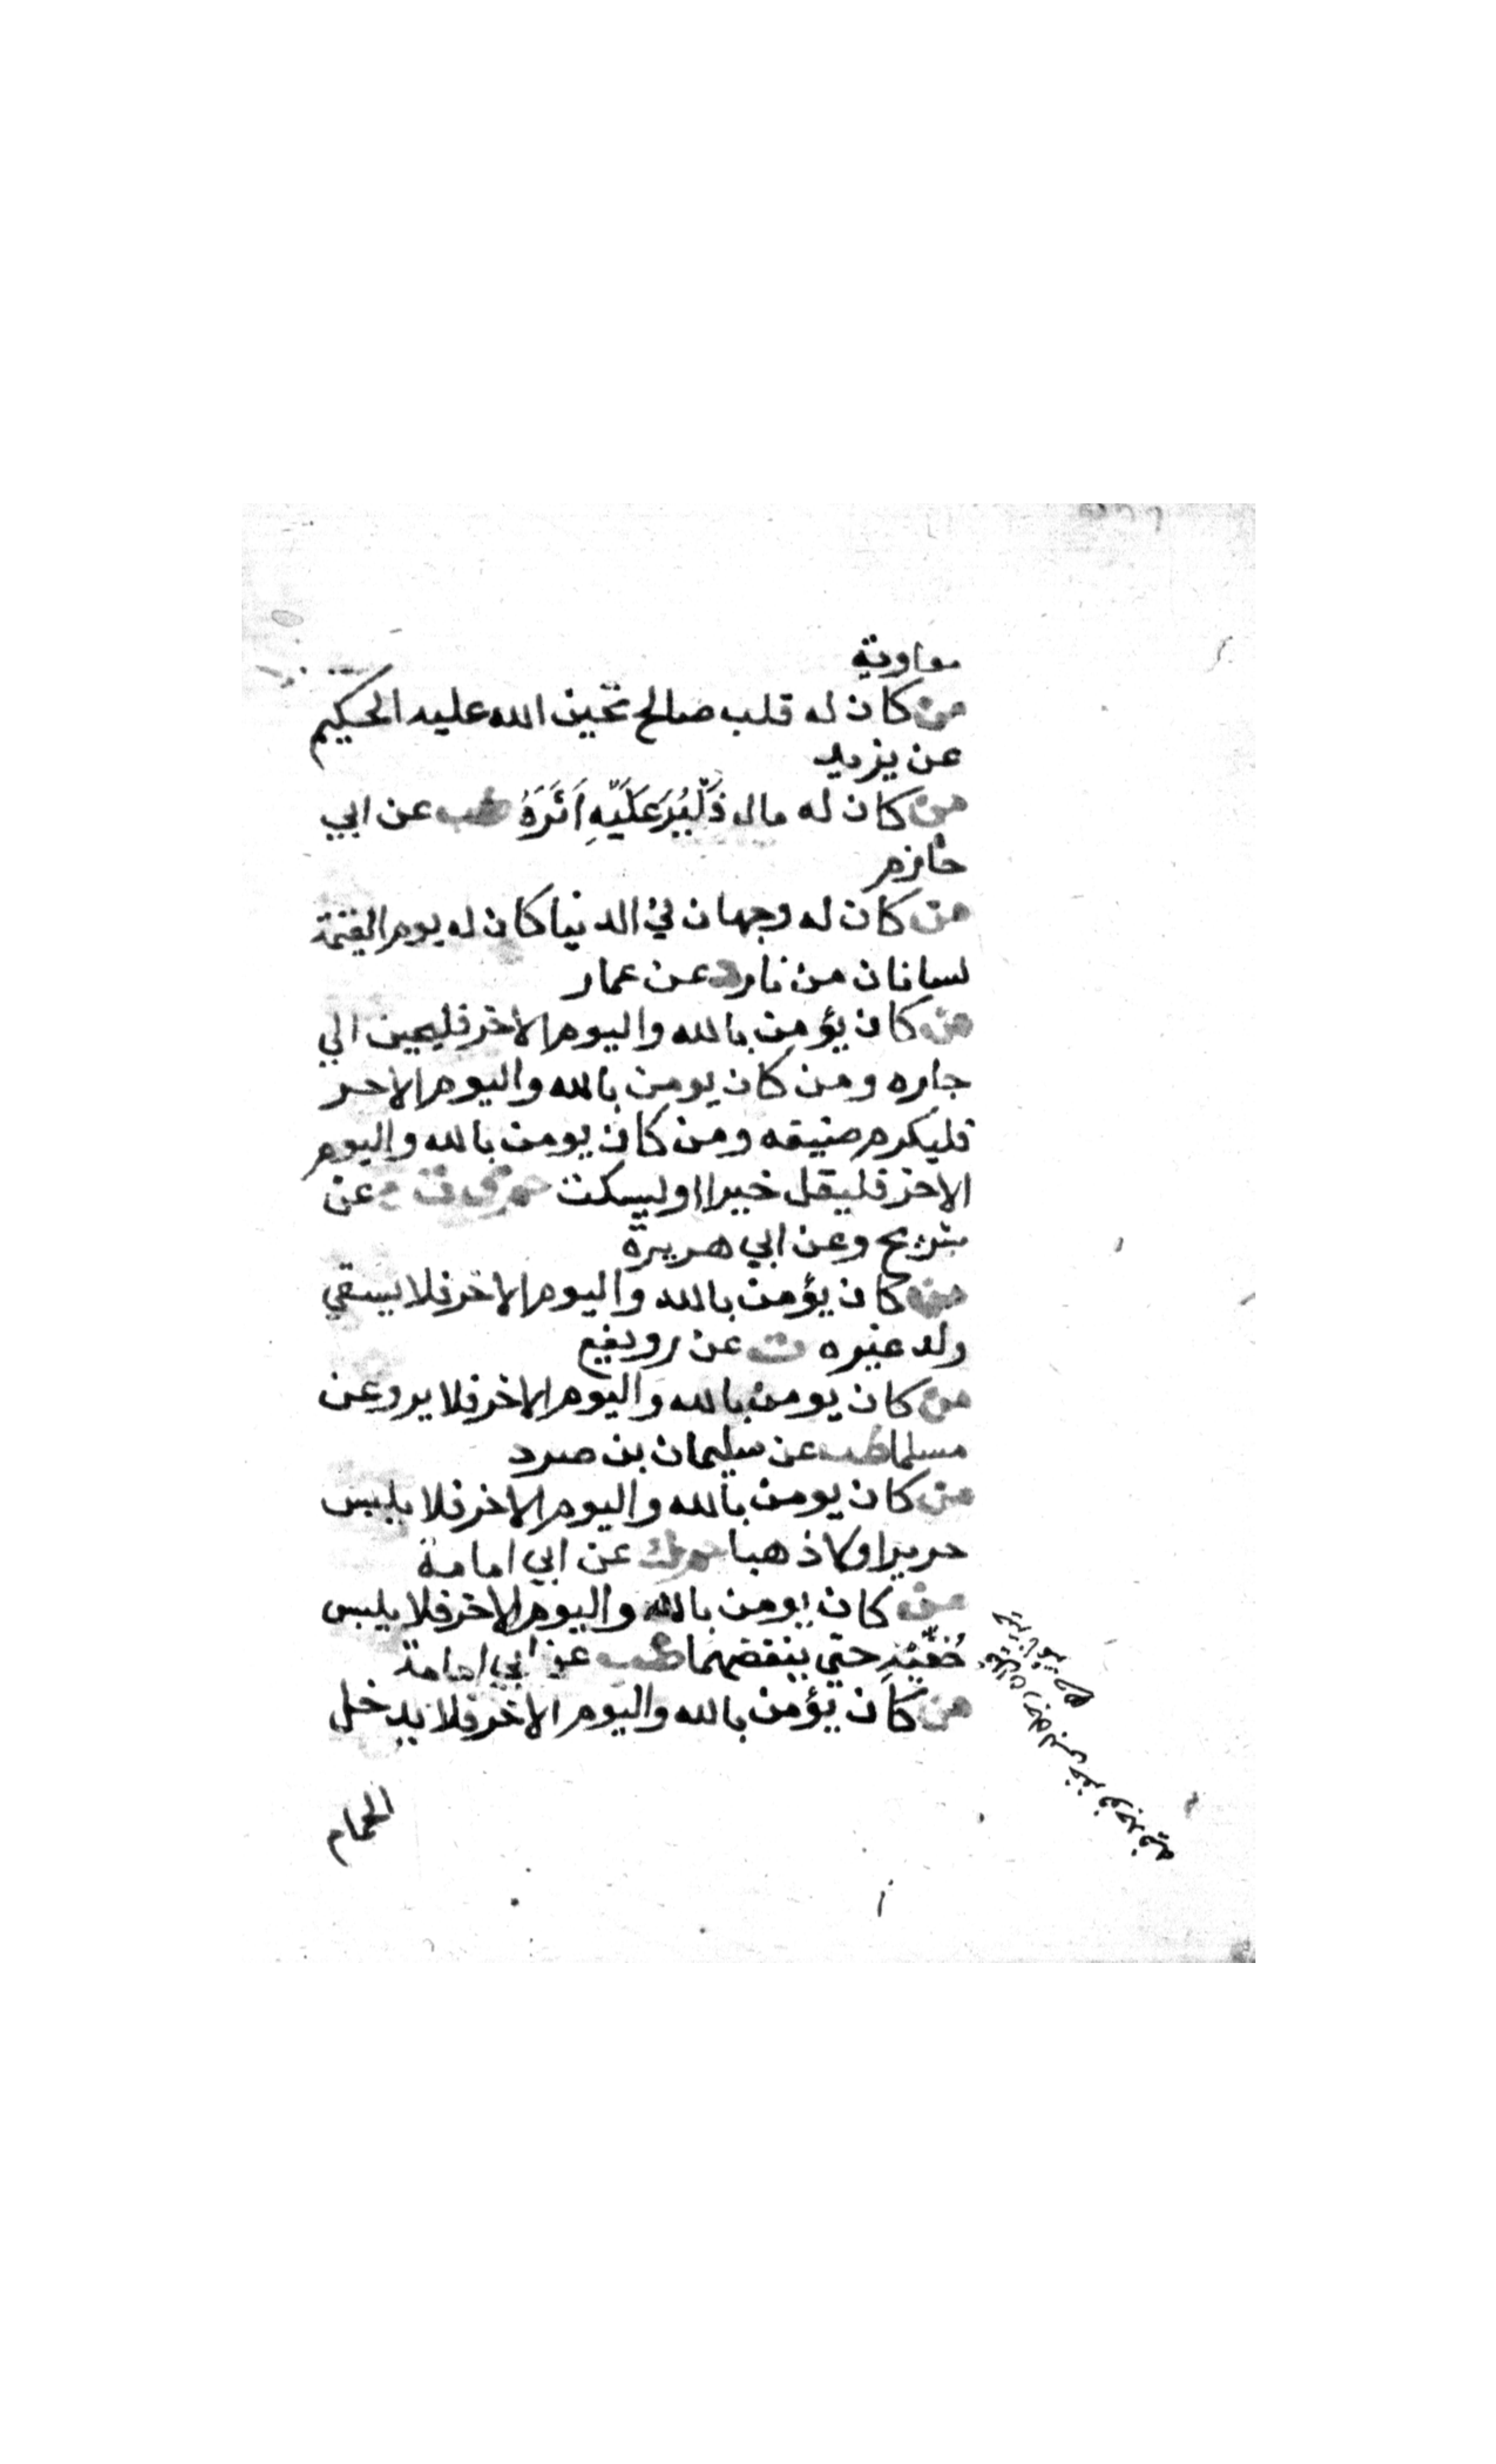 معاوية
من كان له قلب صالح تحنن الله عليه الحكيم
عن يزيد
من كان له مال فَلْيُرَ عَلَيْهِ اَثَرَهُ طب عن ابي
حازم
من كان له وجهان في الدنيا كان له يوم القيمة
لسانان من نار د عن عمار
من كان يؤمن بالله واليوم الاخر فليحسن الي
جاره ومن كان يومن بالله واليوم الاحر
فليكرم ضيفه ومن كان يومن بالله واليوم
الاخر فليقل خيرا او ليسكت حم ق ت ه عن
شريح وعن ابي هريرة
من كان يؤمن بالله واليوم الاخر فلا يسقي
ولد غيره ت عن رويفع
من كان يومن بالله واليوم الاخر فلا يروعن
مسلما طب عن سليمان بن صرد
من كان يومن بالله واليوم الاخر فلا يلبس
حريرا ولا ذهبا حم ك عن ابي امامة
من كان يومن بالله واليوم الاخر فلا يلبس
خُفَّيْهِ حتي ينفضهما طب عن ابي امامة
من كان يؤمن بالله واليوم الاخر فلا يدخل
الحمام